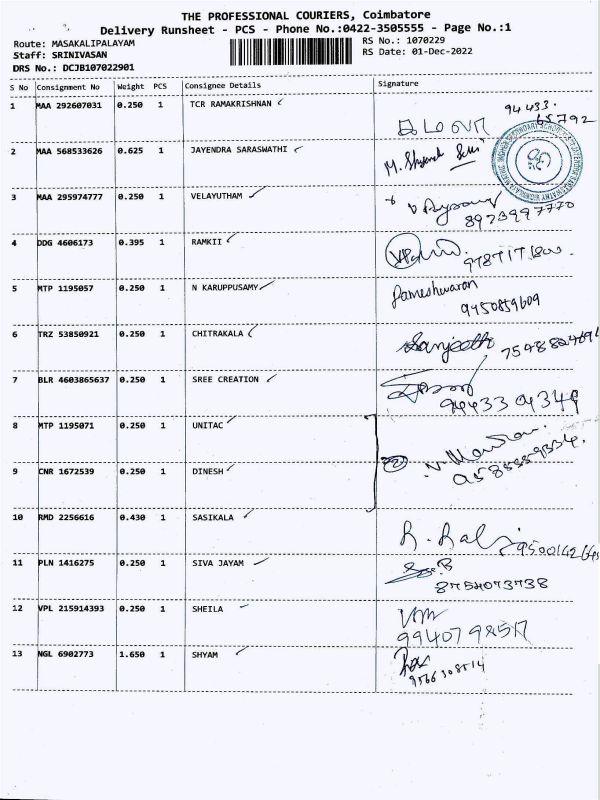 THE PROFESSIONAL COURIERS, Coimbatore
Delivery Runsheet - PCS - Phone No.:0422-3505555 - Page No.:1
Route: MASAKALIPALAYAM
RS No.: 1070229
Staff: SRINIVASAN
RS Date: 01-Dec-2022
DRS No.: DCJB107022901
S No Consignment No Weight PCS Consignee Details Signature
1 MAA 292607031 0.250 1 TCR RAMAKRISHNAN 94433 65792
2 MAA 568533626 0.625 1 JAYENDRA SARASWATHI
3 MAA 295974777 0.250 1 VELAYUTHAM 8973997770
4 DDG 4606173 0.395 1 RAMKII
5 MTP 1195057 0.250 1 N KARUPPUSAMY Pameshwaran
9450859609
6 TRZ 53850921 0.250 1 CHITRAKALA Sanjeeth
7 BLR 4603865637 0.250 1 SREE CREATION
8 MTP 1195071 0.250 1 UNITAC
9 CNR 1672539 0.250 1 DINESH
10 RMD 2256616 0.430 1 SASIKALA
11 PLN 1416275 0.250 1 SIVA JAYAM
8754073738
12 VPL 215914393 0.250 1 SHEILA
13 NGL 6902773 1.650 1 SHYAM
9566308514